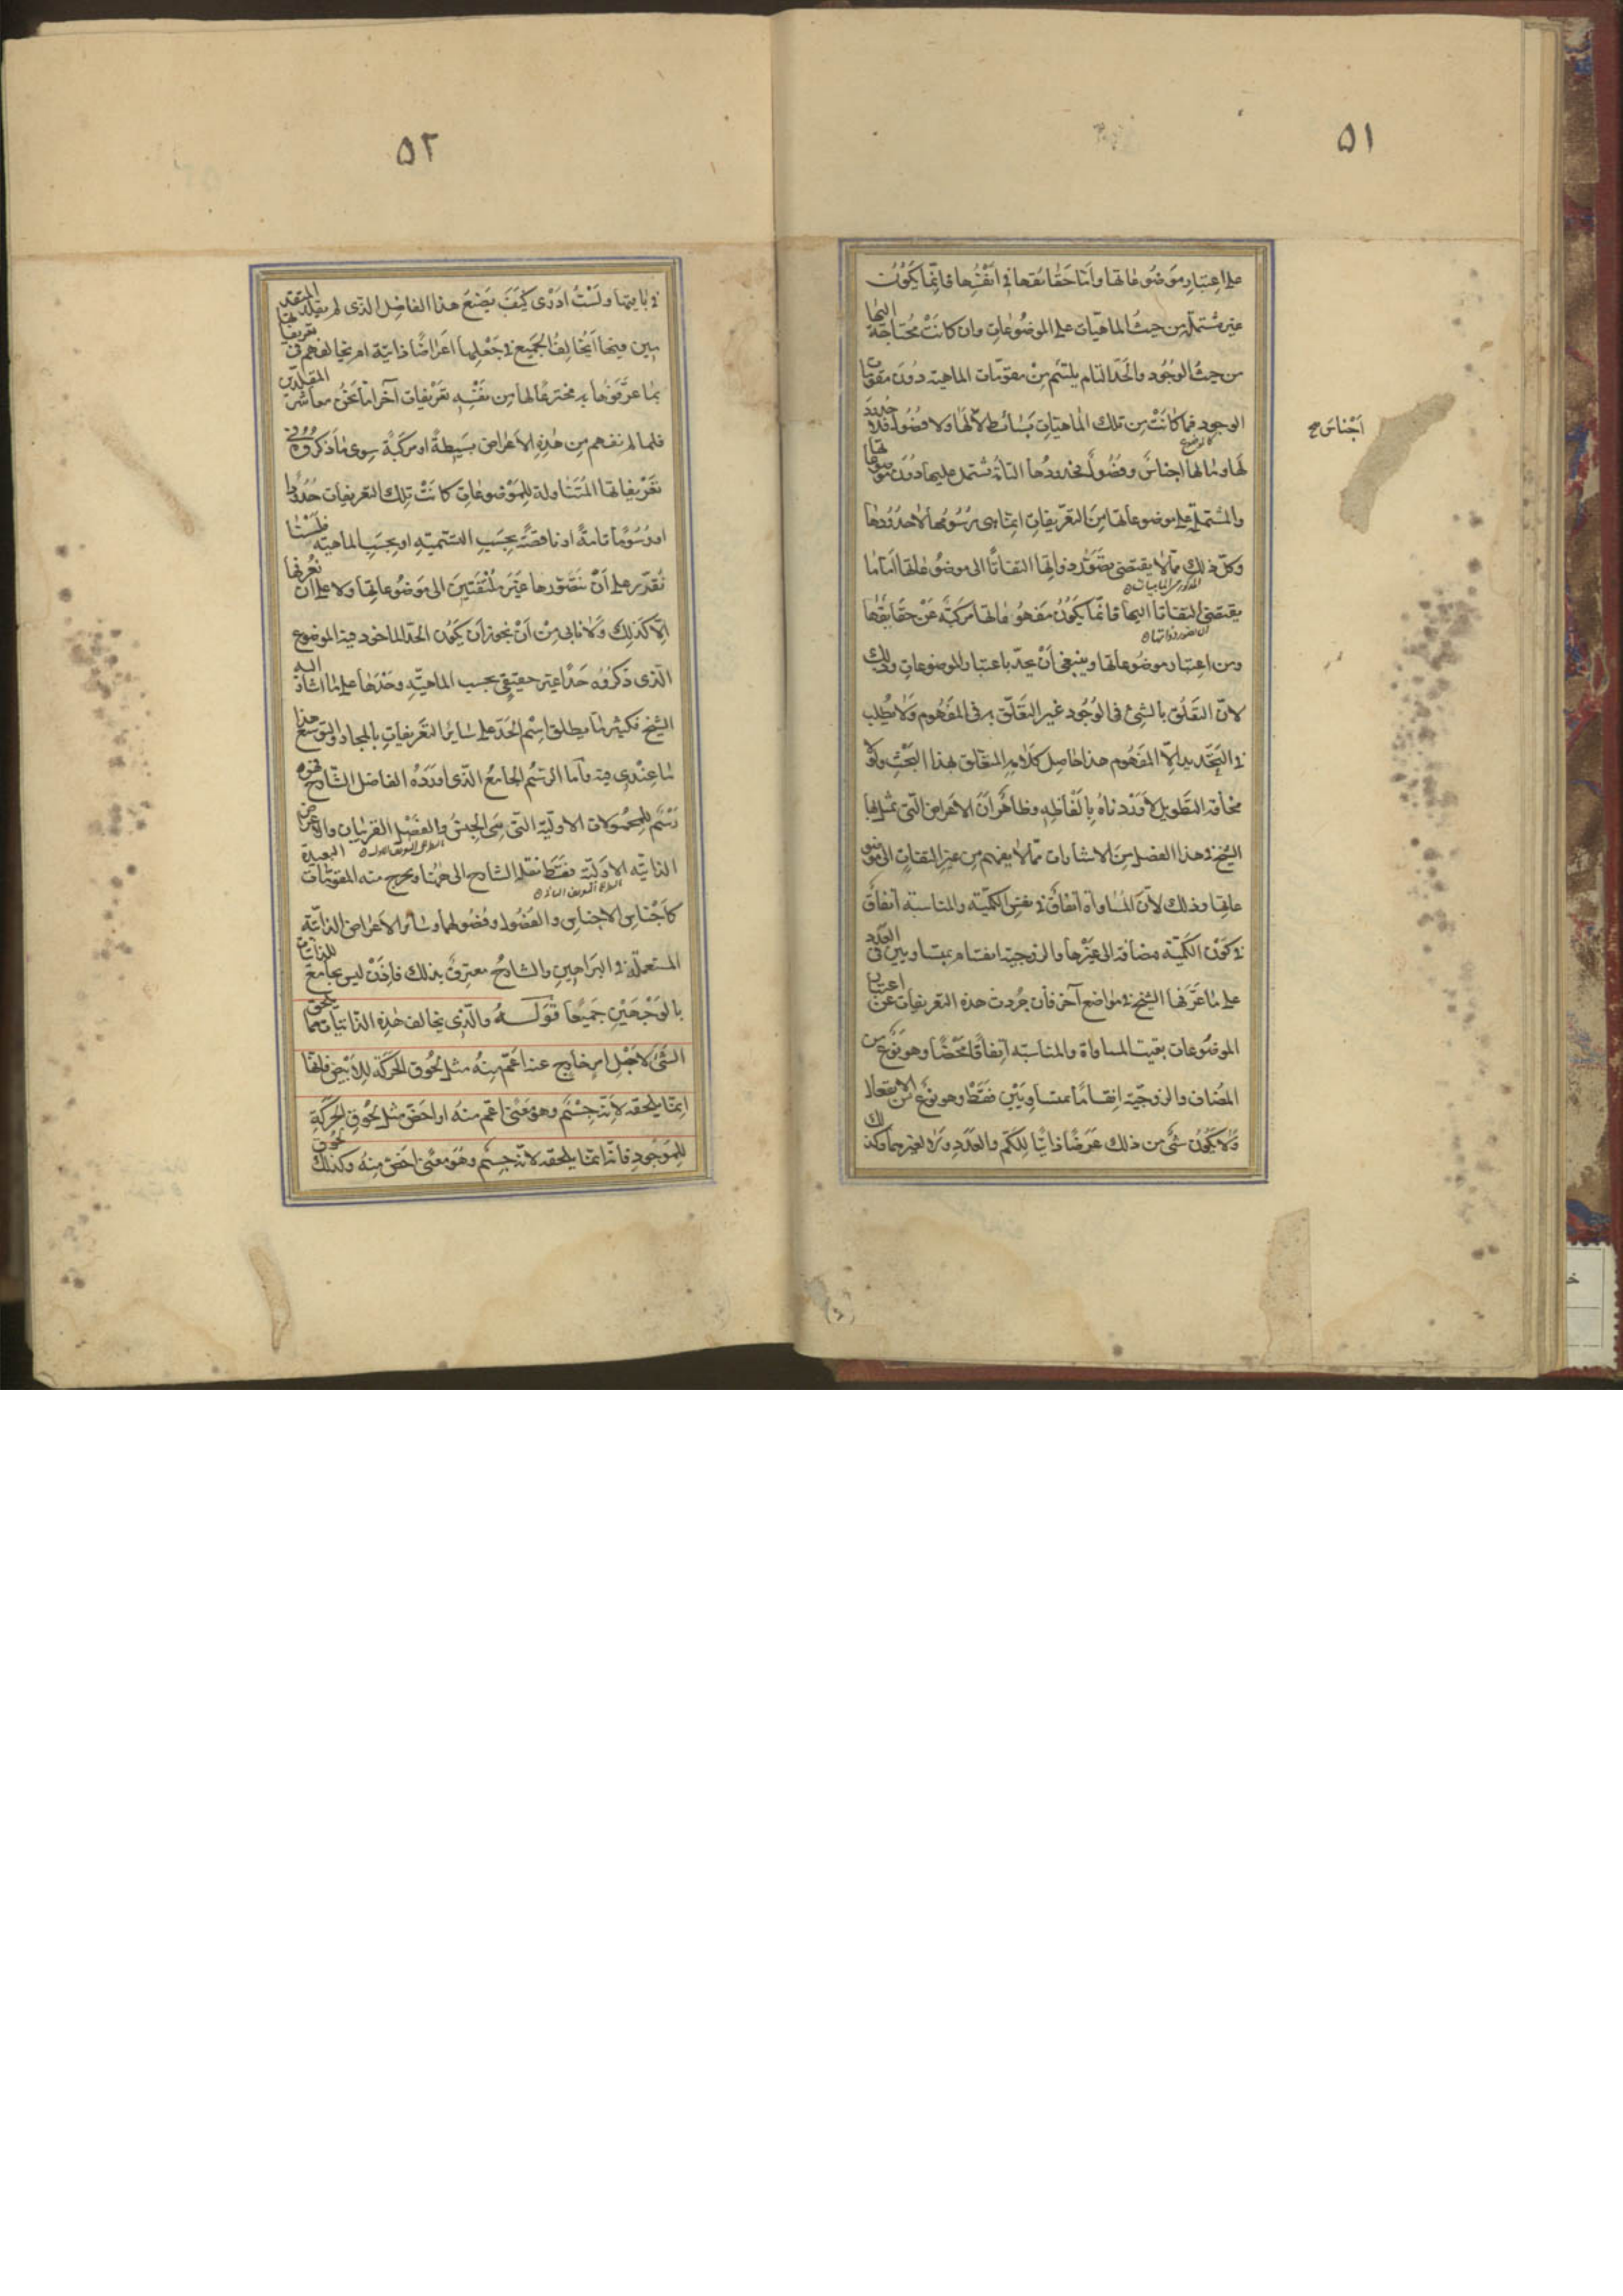 ٥١
على اعتبار موضوعاتها وأما حقائقها في أنفسها فانما يكون
غير مشتملة من حيث الماهيات على الموضوعات وان كانت محتاجة اليها
من حيث الوجود والحد التام يلتئم من مقومات الماهية دون مقومات
الوجود فما كانت من تلك الماهيات بسائط لا اجناس لها ولا فصول فلا حدود
اجناس صح
لها وما لها اجناس وفصول فحدودها التامة تشتمل عليها دون موضوعاتها
والمشتملة على موضوعاتها من التعريفات انما هى رسومها لا حدودها
وكل ذلك مما لا يقتضى تصور ذواتها التفاتا الى موضوعاتها اما ما
يقتضى التفاتا اليها فانما يكون مفهوماتها مركبة عن حقايقها
ومن اعتبار موضوعاتها وينبغى أن يحد باعتبار الموضوعات وذلك
لان التعلق بالشئ فى الوجود غير التعلق به فى المفهوم ولا يطلب
فى التحديد الا المفهوم هذا حاصل كلامه المتعلق بهذا البحث ولولا
مخافة التطويل لاوردناه بألفاظه وظاهر أن الاعراض التى تمثل بها
الشيخ فى هذا الفصل من الاشارات مما لا يفهم من غير التفات الى موضو
عاتها وذلك لان المساواة اتفاق فى نفس الكمية والمناسبة اتفاق
فى كون الكمية مضافة الى غيرها والزوجية انقسام بمتساويين فى العدد
على ما عرفها الشيخ فى مواضع آخر فان جردت هذه التعريفات عن اعتبار
الموضوعات بقيت المساواة والمناسبة اتفاقا محضا وهو نوع من
المضاف والزوجية انقساما بمتساويين فقط وهو نوع من الانفعال
ولا يكون شئ من ذلك عرضا ذاتيا للكم والعدد ولا لغيرهما وكذلك
٥٢
فى باقيها ولست ادرى كيف يصنع هذا الفاضل الذى لم يقلد المتقد
مين فيها أيخالف الجميع فى جعلها اعراضا ذاتية ام يخالفهم فى تعريفاتها
بما عرفوها به مخترعا لها من نفسه تعريفات آخر اما نحن معاشر المقلدين
فلما لم نفهم من هذه الاعراض بسيطة او مركبة سوى ما ذكروه فى
تعريفاتها المتناولة للموضوعات كانت تلك التعريفات حدودا
او رسوما تامة او ناقصة بحسب التسمية او بحسب الماهية فلسنا
نقدر على أن نتصورها غير ملتفتين الى موضوعاتها ولا على أن نعرفها
الا كذلك ولا نابى من أن يجوز أن يكون الحد الماخوذ فيه الموضوع
الذى ذكروه حدا غير حقيقى بحسب الماهية وحدها على ما اشار اليه
الشيخ فكثيرا ما يطلق اسم الحد على سائر التعريفات بالمجاز والتوسع هذا
ما عندى فيه وأما الرسم الجامع الذى اورده الفاضل الشارح فهو
رسم للمحمولات الاولية التى هى الجنس والفصل القريبان والاعراض
الذاتية الاولية فقط نقله الشارح الى هاهنا ويخرج منه المقومات البعيدة
كأجناس الاجناس والفصول وفصولهما وسائر الاعراض الذاتية
المستعملة فى البراهين والشارح معترف بذلك فاذن ليس بجامع للذاتيات
بالوجهين جميعا قوله والذى يخالف هذه الذاتيات مما يلحق
الشئ لاجل امر خارج عنه اعم منه مثل لحوق الحركة للأبيض فانها
انما يلحقه لأنه جسم وهو معنى اعم منه او اخص مثل لحوق الحركة
للموجود فانه انما يلحقه لانه جسم وهو معنى اخص منه وكذلك لحوق